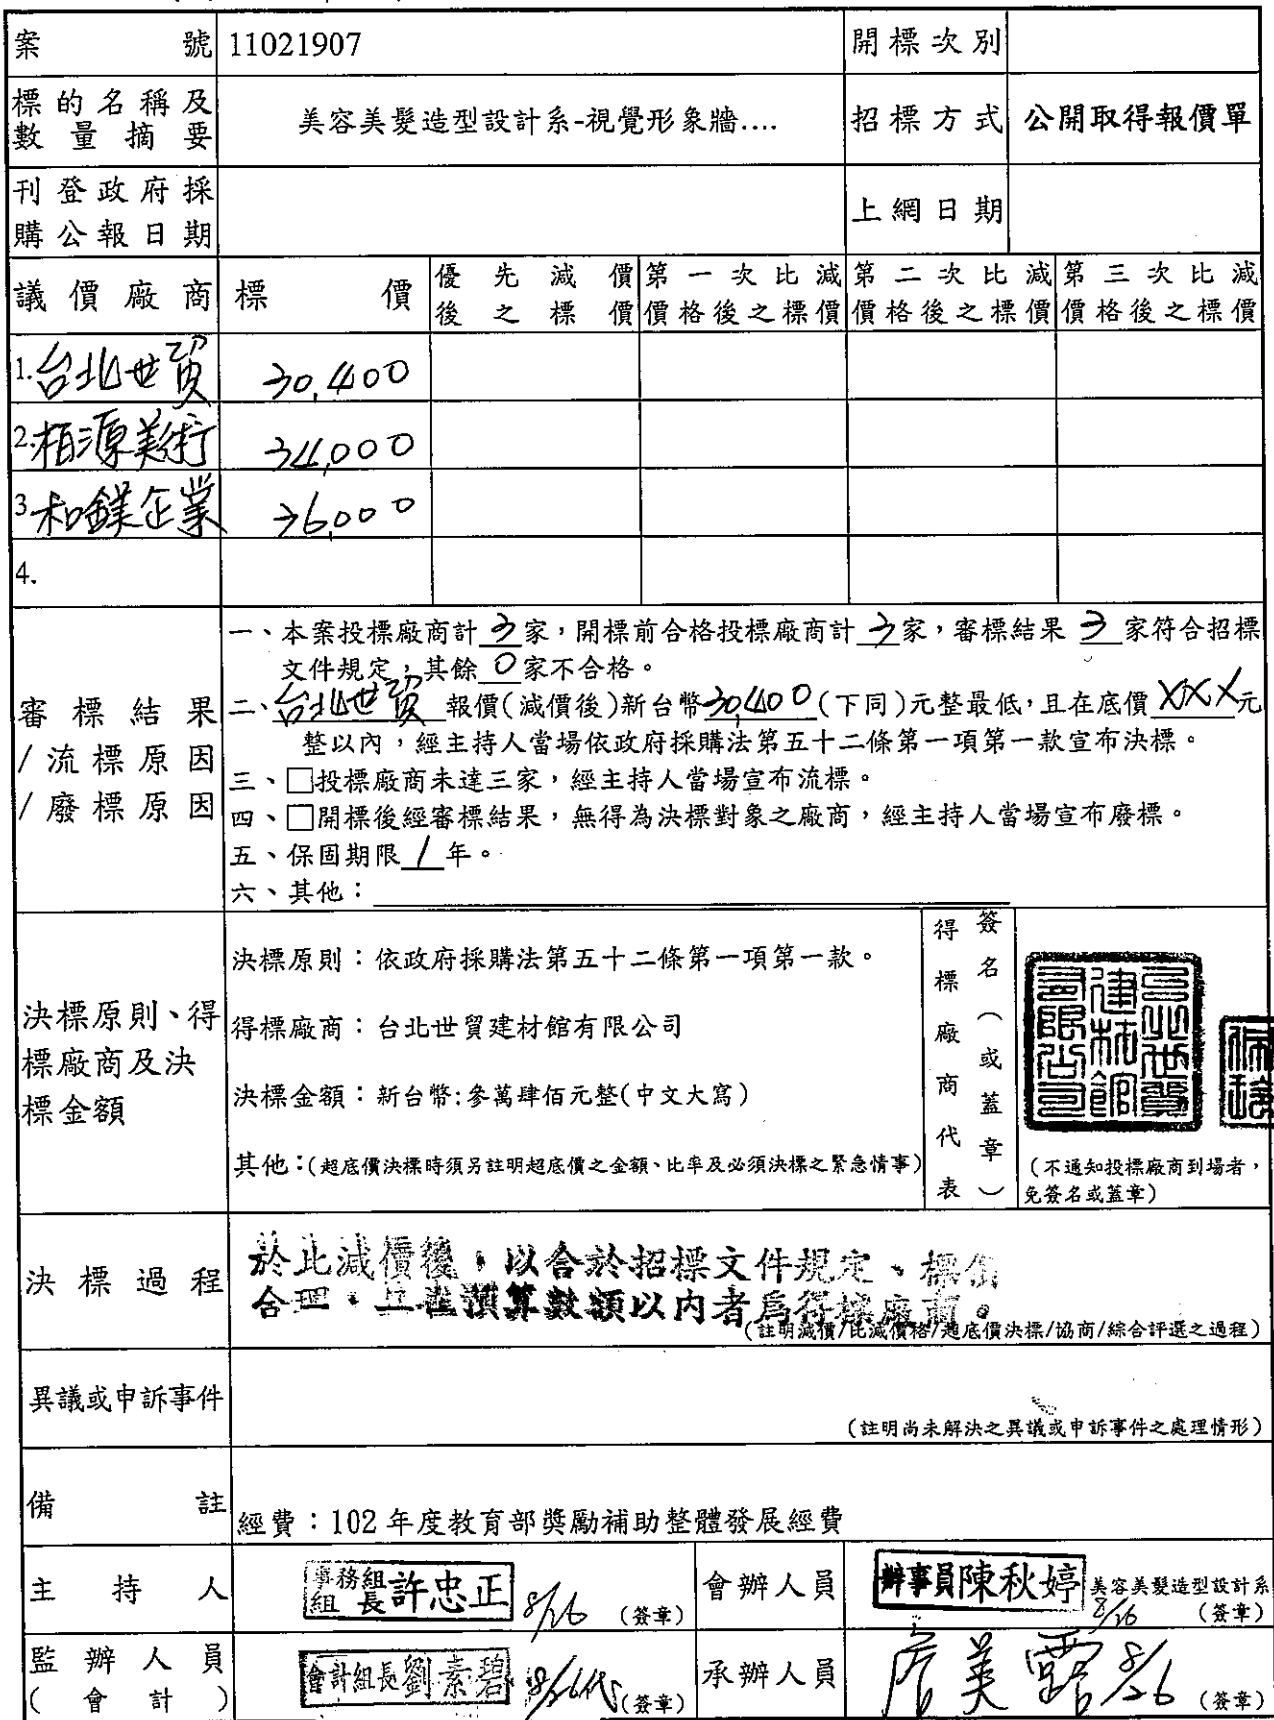 案號 11021907 開標次別
標的名稱及數量摘要 美容美髮造型設計系-視覺形象牆.... 招標方式 公開取得報價單
刊登政府採購公報日期 上網日期
議價廠商 標價 優先減價後之標價 第一次比減價格後之標價 第二次比減價格後之標價 第三次比減價格後之標價
1.台北世貿 30,400
2.栢源美術 34,000
3.和鎂企業 36,000
4.
審標結果/流標原因/廢標原因
一、本案投標廠商計 3 家，開標前合格投標廠商計 3 家，審標結果 3 家符合招標
文件規定，其餘 0 家不合格。
二、台北世貿 報價(減價後)新台幣30,400(下同)元整最低，且在底價 XXX元
整以內，經主持人當場依政府採購法第五十二條第一項第一款宣布決標。
三、□投標廠商未達三家，經主持人當場宣布流標。
四、□開標後經審標結果，無得為決標對象之廠商，經主持人當場宣布廢標。
五、保固期限 1 年。
六、其他：
決標原則、得標廠商及決標金額
決標原則：依政府採購法第五十二條第一項第一款。
得標廠商：台北世貿建材館有限公司
決標金額：新台幣:參萬肆佰元整(中文大寫)
其他：(超底價決標時須另註明超底價之金額、比率及必須決標之緊急情事)
得標廠商代表 簽名（或蓋章）
台北世貿建材館有限公司
(不通知投標廠商到場者，
免簽名或蓋章)
決標過程
於此減價後，以合於招標文件規定、標價
合理，且在預算數額以內者為得標廠商。
(註明減價/比減價格/超底價決標/協商/綜合評選之過程)
異議或申訴事件
(註明尚未解決之異議或申訴事件之處理情形)
備註 經費：102 年度教育部獎勵補助整體發展經費
主持人 事務組組長許忠正 8/26 (簽章) 會辦人員 辦事員陳秋婷 美容美髮造型設計系 8/26 (簽章)
監辦人員(會計) 會計組長劉素碧 8/26代 (簽章) 承辦人員 美露 8/26 (簽章)